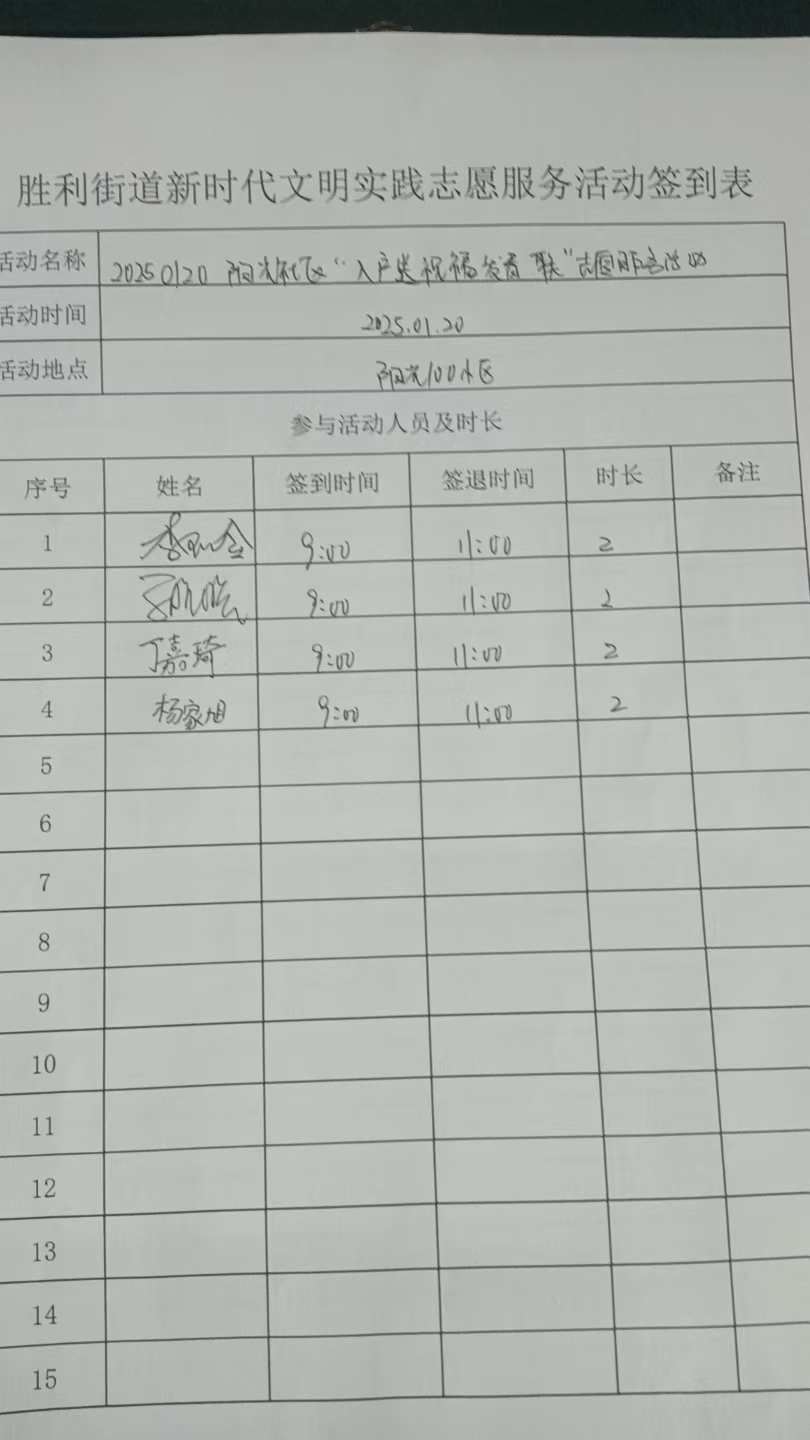 胜利街道新时代文明实践志愿服务活动签到表
活动名称 20250120 阳光社区“入户送祝福 发春联”志愿服务活动
活动时间 2025.01.20
活动地点 阳光100小区
参与活动人员及时长
序号 姓名 签到时间 签退时间 时长 备注
1 9:00 11:00 2
2 9:00 11:00 2
3 丁嘉琦 9:00 11:00 2
4 杨家旭 9:00 11:00 2
5
6
7
8
9
10
11
12
13
14
15